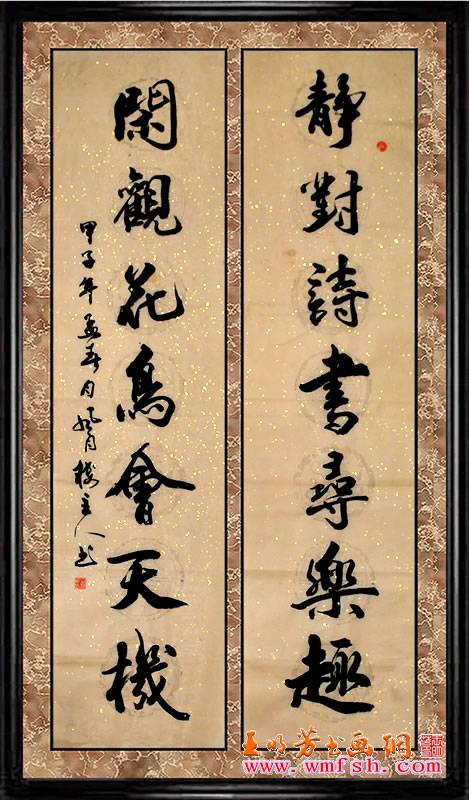 靜對詩書尋樂趣
閑觀花鳥會天機
甲子年孟春月風月樓主人书
王明芳书画網
www.wmfsh.com